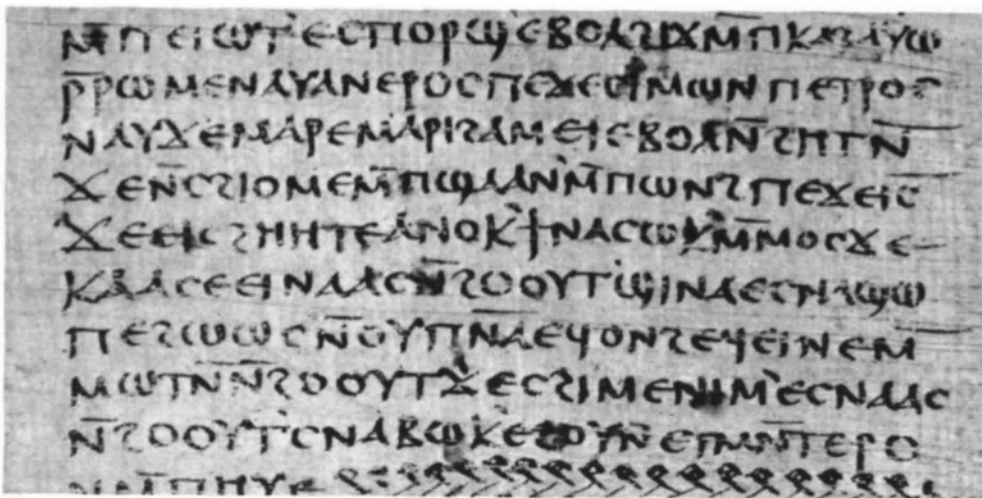 ⲙ̄ⲡⲉⲓⲱⲧ' ⲉⲥⲡⲟⲣϣ' ⲉⲃⲟⲗ ϩⲓϫⲙ̄ ⲡⲕⲁϩ ⲁⲩⲱ
ⲣ̄ⲣⲱⲙⲉ ⲛⲁⲩ ⲁⲛ ⲉⲣⲟⲥ ⲡⲉϫⲉ ⲥⲓⲙⲱⲛ ⲡⲉⲧⲣⲟⲥ
ⲛⲁⲩ ϫⲉ ⲙⲁⲣⲉ ⲙⲁⲣⲓϩⲁⲙ ⲉⲓ ⲉⲃⲟⲗ ⲛ̄ϩⲏⲧⲛ̄
ϫⲉ ⲛ̄ⲥϩⲓⲟⲙⲉ ⲙ̄ⲡϣⲁ ⲁⲛ' ⲙ̄ⲡⲱⲛϩ ⲡⲉϫⲉ ⲓ̄ⲥ̄
ϫⲉ ⲉⲓⲥ ϩⲏⲏⲧⲉ ⲁⲛⲟⲕ' ϯⲛⲁⲥⲱⲕ' ⲙ̄ⲙⲟⲥ ϫⲉ
ⲕⲁⲁⲥ ⲉⲉⲓⲛⲁⲁⲥ ⲛ̄ϩⲟⲟⲩⲧ' ϣⲓⲛⲁ ⲉⲥⲛⲁϣⲱ
ⲡⲉ ϩⲱⲱⲥ ⲛ̄ⲟⲩⲡⲛ̄ⲁ̄ ⲉϥⲟⲛϩ ⲉϥⲉⲓⲛⲉ ⲙ̄
ⲙⲱⲧⲛ̄ ⲛ̄ϩⲟⲟⲩⲧ' ϫⲉ ⲥϩⲓⲙⲉ ⲛⲓⲙ' ⲉⲥⲛⲁⲁⲥ
ⲛ̄ϩⲟⲟⲩⲧ' ⲥⲛⲁⲃⲱⲕ' ⲉϩⲟⲩⲛ ⲉⲧⲙⲛ̄ⲧⲉⲣⲟ
ⲛⲙ̄ⲡⲏⲩⲉ